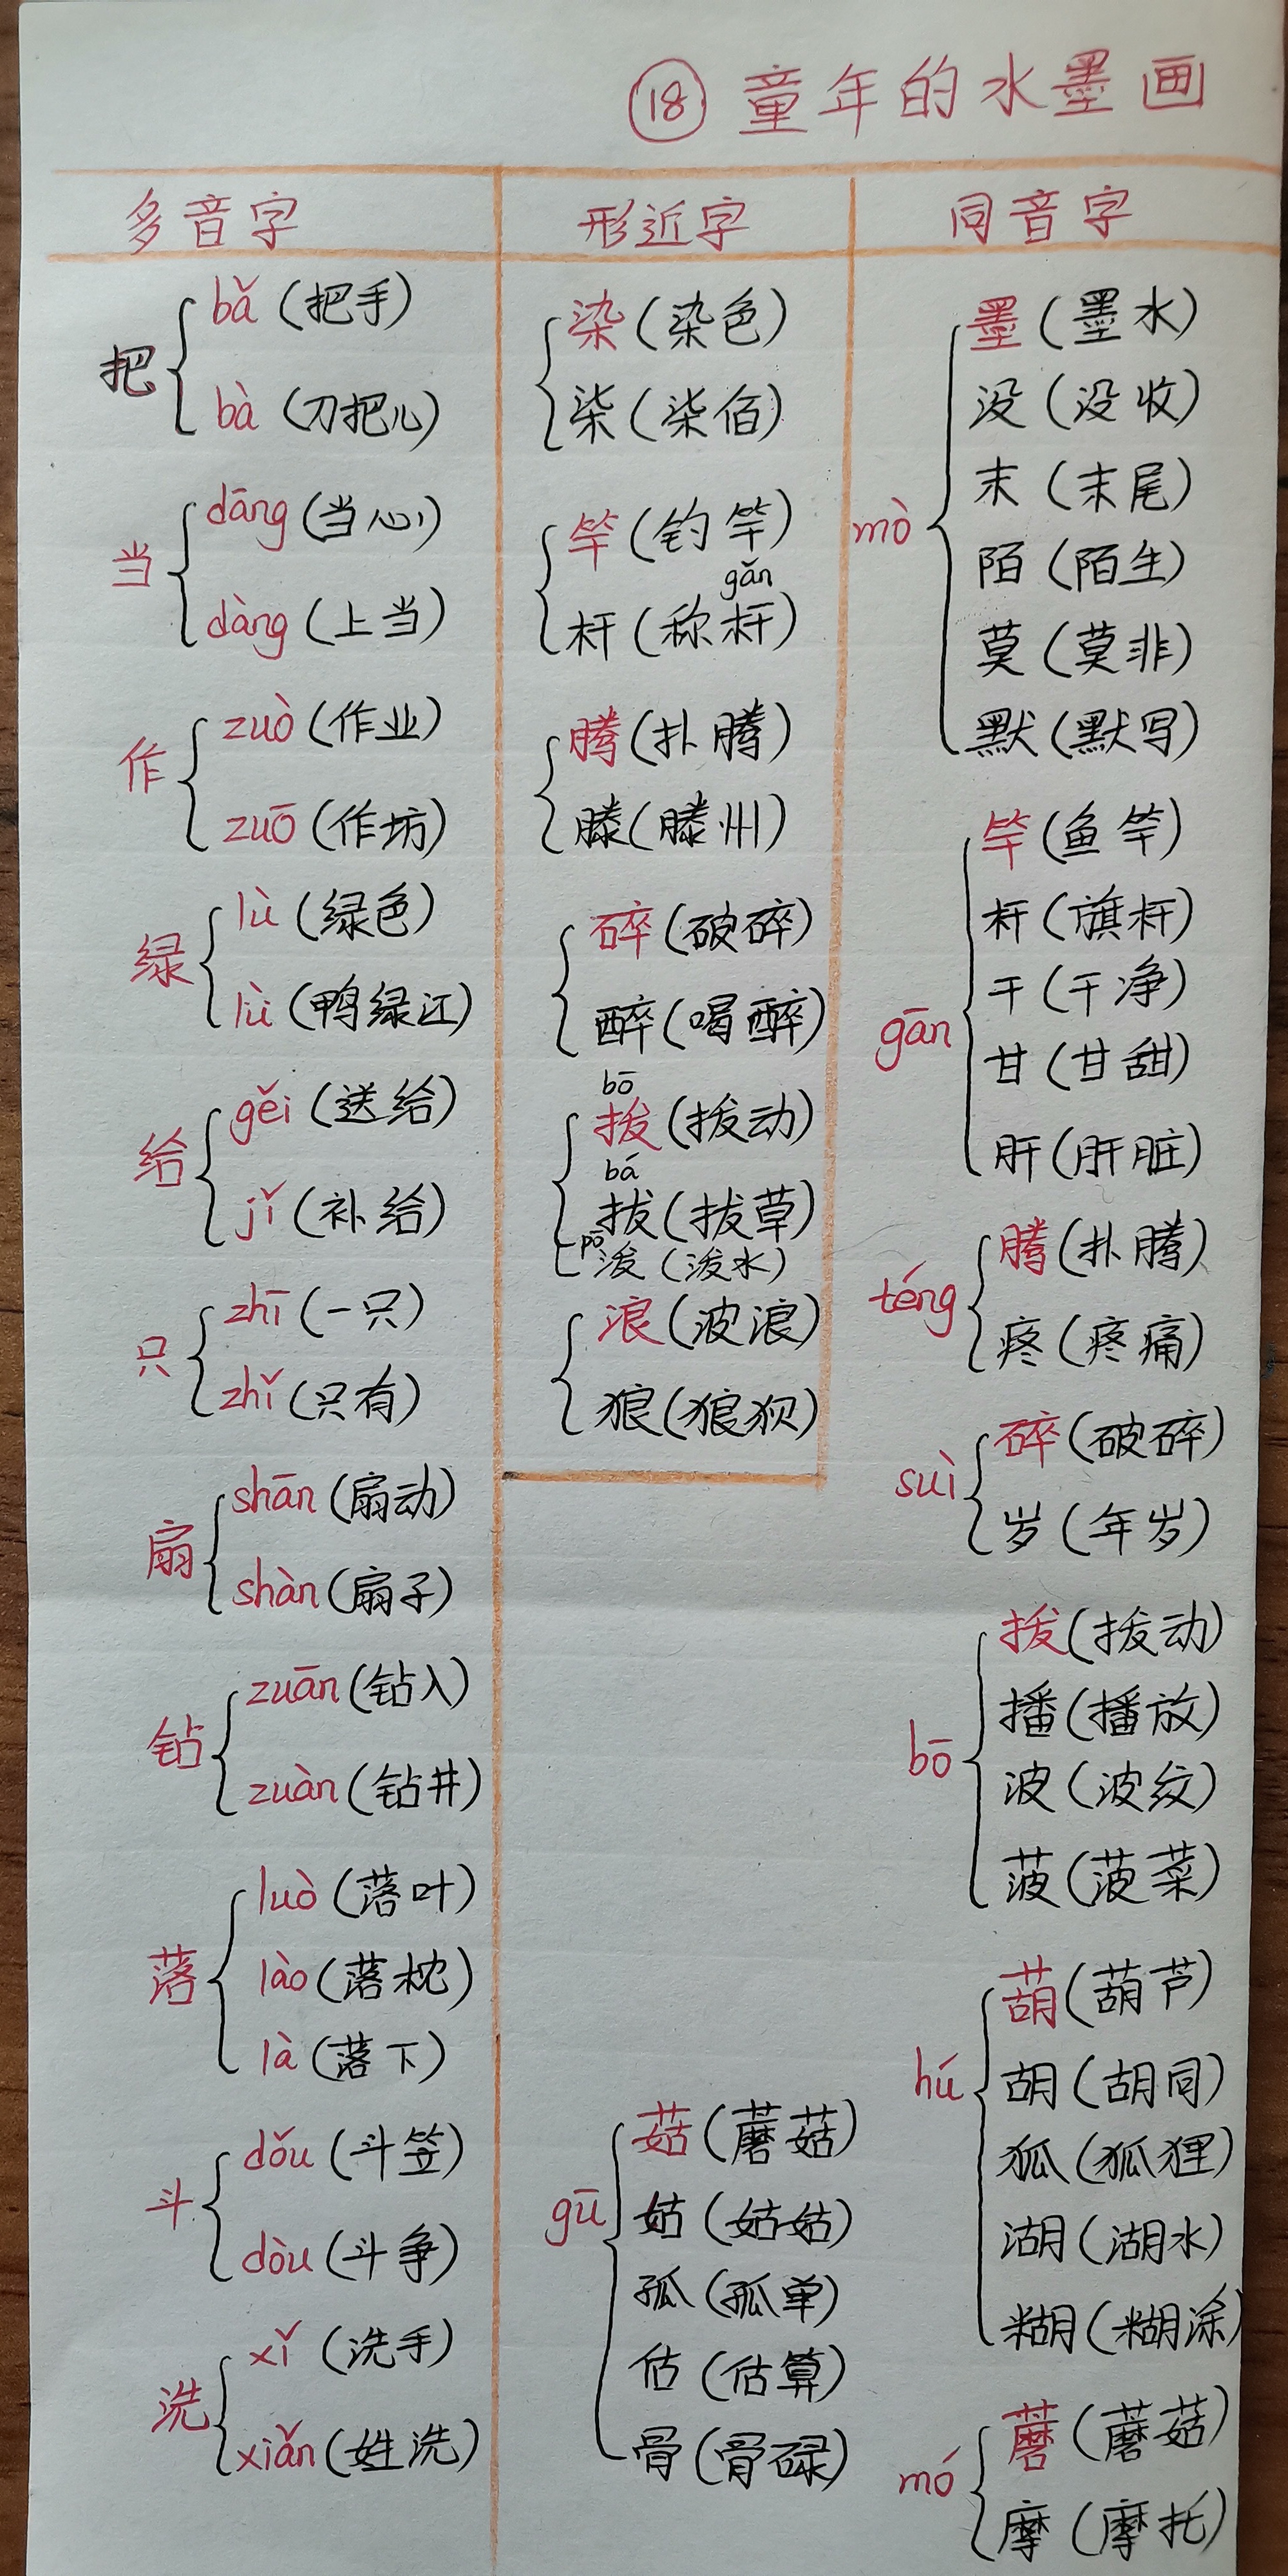 ⑱ 童年的水墨画
多音字
把
bǎ (把手)
bà (刀把儿)
当
dāng (当心)
dàng (上当)
作
zuò (作业)
zuō (作坊)
绿
lǜ (绿色)
lù (鸭绿江)
给
gěi (送给)
jǐ (补给)
只
zhī (一只)
zhǐ (只有)
扇
shān (扇动)
shàn (扇子)
钻
zuān (钻入)
zuàn (钻井)
落
luò (落叶)
lào (落枕)
là (落下)
斗
dǒu (斗笠)
dòu (斗争)
洗
xǐ (洗手)
xiǎn (姓洗)
形近字
染 (染色)
柒 (柒佰)
竿 (钓竿)
gǎn
杆 (称杆)
腾 (扑腾)
滕 (滕州)
碎 (破碎)
醉 (喝醉)
bō
拨 (拨动)
bá
拔 (拔草)
pō
泼 (泼水)
浪 (波浪)
狼 (狼狈)
同音字
mò
墨 (墨水)
没 (没收)
末 (末尾)
陌 (陌生)
莫 (莫非)
默 (默写)
gān
竿 (鱼竿)
杆 (旗杆)
干 (干净)
甘 (甘甜)
肝 (肝脏)
téng
腾 (扑腾)
疼 (疼痛)
suì
碎 (破碎)
岁 (年岁)
bō
拨 (拨动)
播 (播放)
波 (波纹)
菠 (菠菜)
hú
葫 (葫芦)
胡 (胡同)
狐 (狐狸)
湖 (湖水)
糊 (糊涂)
mó
蘑 (蘑菇)
摩 (摩托)
gū
菇 (蘑菇)
姑 (姑姑)
孤 (孤单)
估 (估算)
骨 (骨碌)